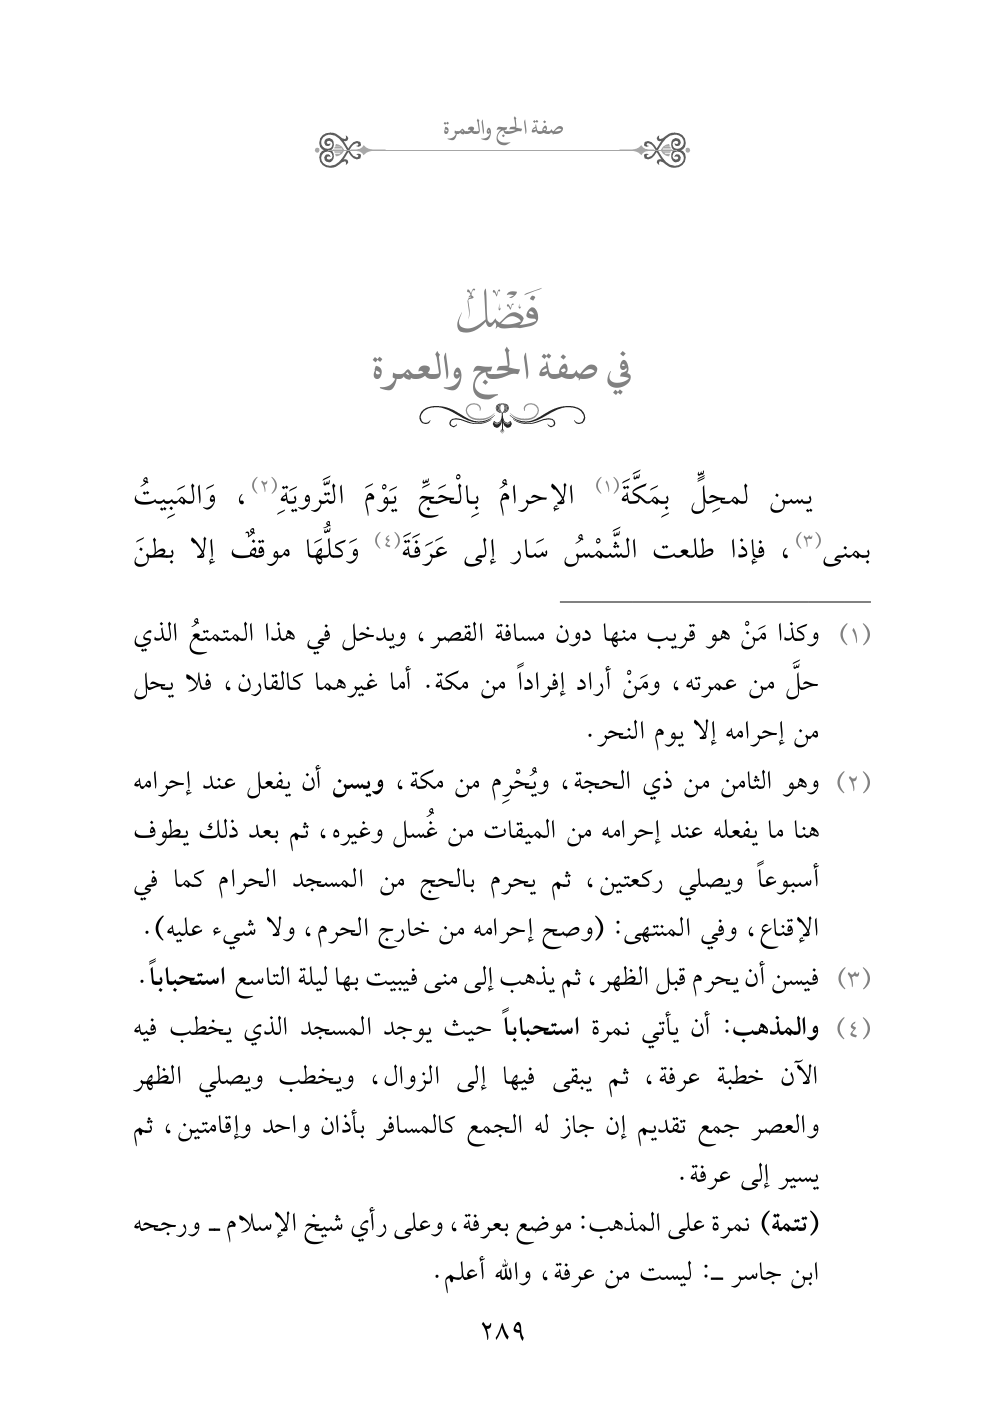 صفة الحج والعمرة
فَصْلٌ
في صفة الحج والعمرة
يسن لمحِلٍّ بِمَكَّةَ(١) الإحرامُ بِالْحَجِّ يَوْمَ التَّرويَةِ(٢)، وَالمَبِيتُ
بمنى(٣)، فإذا طلعت الشَّمْسُ سَار إلى عَرَفَةَ(٤) وَكلُّهَا موقفٌ إلا بطنَ
(١) وكذا مَنْ هو قريب منها دون مسافة القصر، ويدخل في هذا المتمتعُ الذي
حلَّ من عمرته، ومَنْ أراد إفراداً من مكة. أما غيرهما كالقارن، فلا يحل
من إحرامه إلا يوم النحر.
(٢) وهو الثامن من ذي الحجة، ويُحْرِم من مكة، ويسن أن يفعل عند إحرامه
هنا ما يفعله عند إحرامه من الميقات من غُسل وغيره، ثم بعد ذلك يطوف
أسبوعاً ويصلي ركعتين، ثم يحرم بالحج من المسجد الحرام كما في
الإقناع، وفي المنتهى: (وصح إحرامه من خارج الحرم، ولا شيء عليه).
(٣) فيسن أن يحرم قبل الظهر، ثم يذهب إلى منى فيبيت بها ليلة التاسع استحباباً.
(٤) والمذهب: أن يأتي نمرة استحباباً حيث يوجد المسجد الذي يخطب فيه
الآن خطبة عرفة، ثم يبقى فيها إلى الزوال، ويخطب ويصلي الظهر
والعصر جمع تقديم إن جاز له الجمع كالمسافر بأذان واحد وإقامتين، ثم
يسير إلى عرفة.
(تتمة) نمرة على المذهب: موضع بعرفة، وعلى رأي شيخ الإسلام ـ ورجحه
ابن جاسر ـ: ليست من عرفة، والله أعلم.
٢٨٩